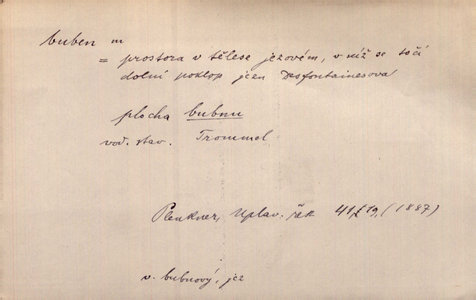 buben m
= prostora v tělese jezovém, v níž se točí
dolní poklop jezu Desfontainesova
plocha bubnu
vod. stav. Trommel
Plenkner, Uplav. řek (1887)
v. bubnový, jez